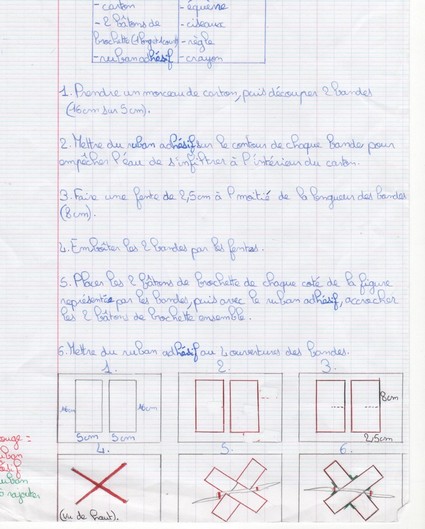 - carton - équerre
- 2 bâtons de - ciseaux
brochette - règle
- ruban adhésif - crayon
1. Prendre un morceau de carton, puis découper 2 bandes
(16cm sur 5cm).
2. Mettre du ruban adhésif sur le contour de chaque bandes pour
empêcher l'eau de s'infiltrer à l'intérieur du carton.
3. Faire une fente de 2,5cm à la moitié de la longueur des bandes
(8cm).
4. Emboîter les 2 bandes par les fentes.
5. Placer les 2 bâtons de brochette de chaque coté de la figure
représentée par les bandes, puis avec le ruban adhésif, accrocher
les 2 bâtons de brochette ensemble.
6. Mettre du ruban adhésif au 4 ouvertures des bandes.
1. 2. 3.
16cm 16cm 8cm
5cm 5cm 2,5cm
4. 5. 6.
ouge =
uban
ésif
uban
(vu de haut).